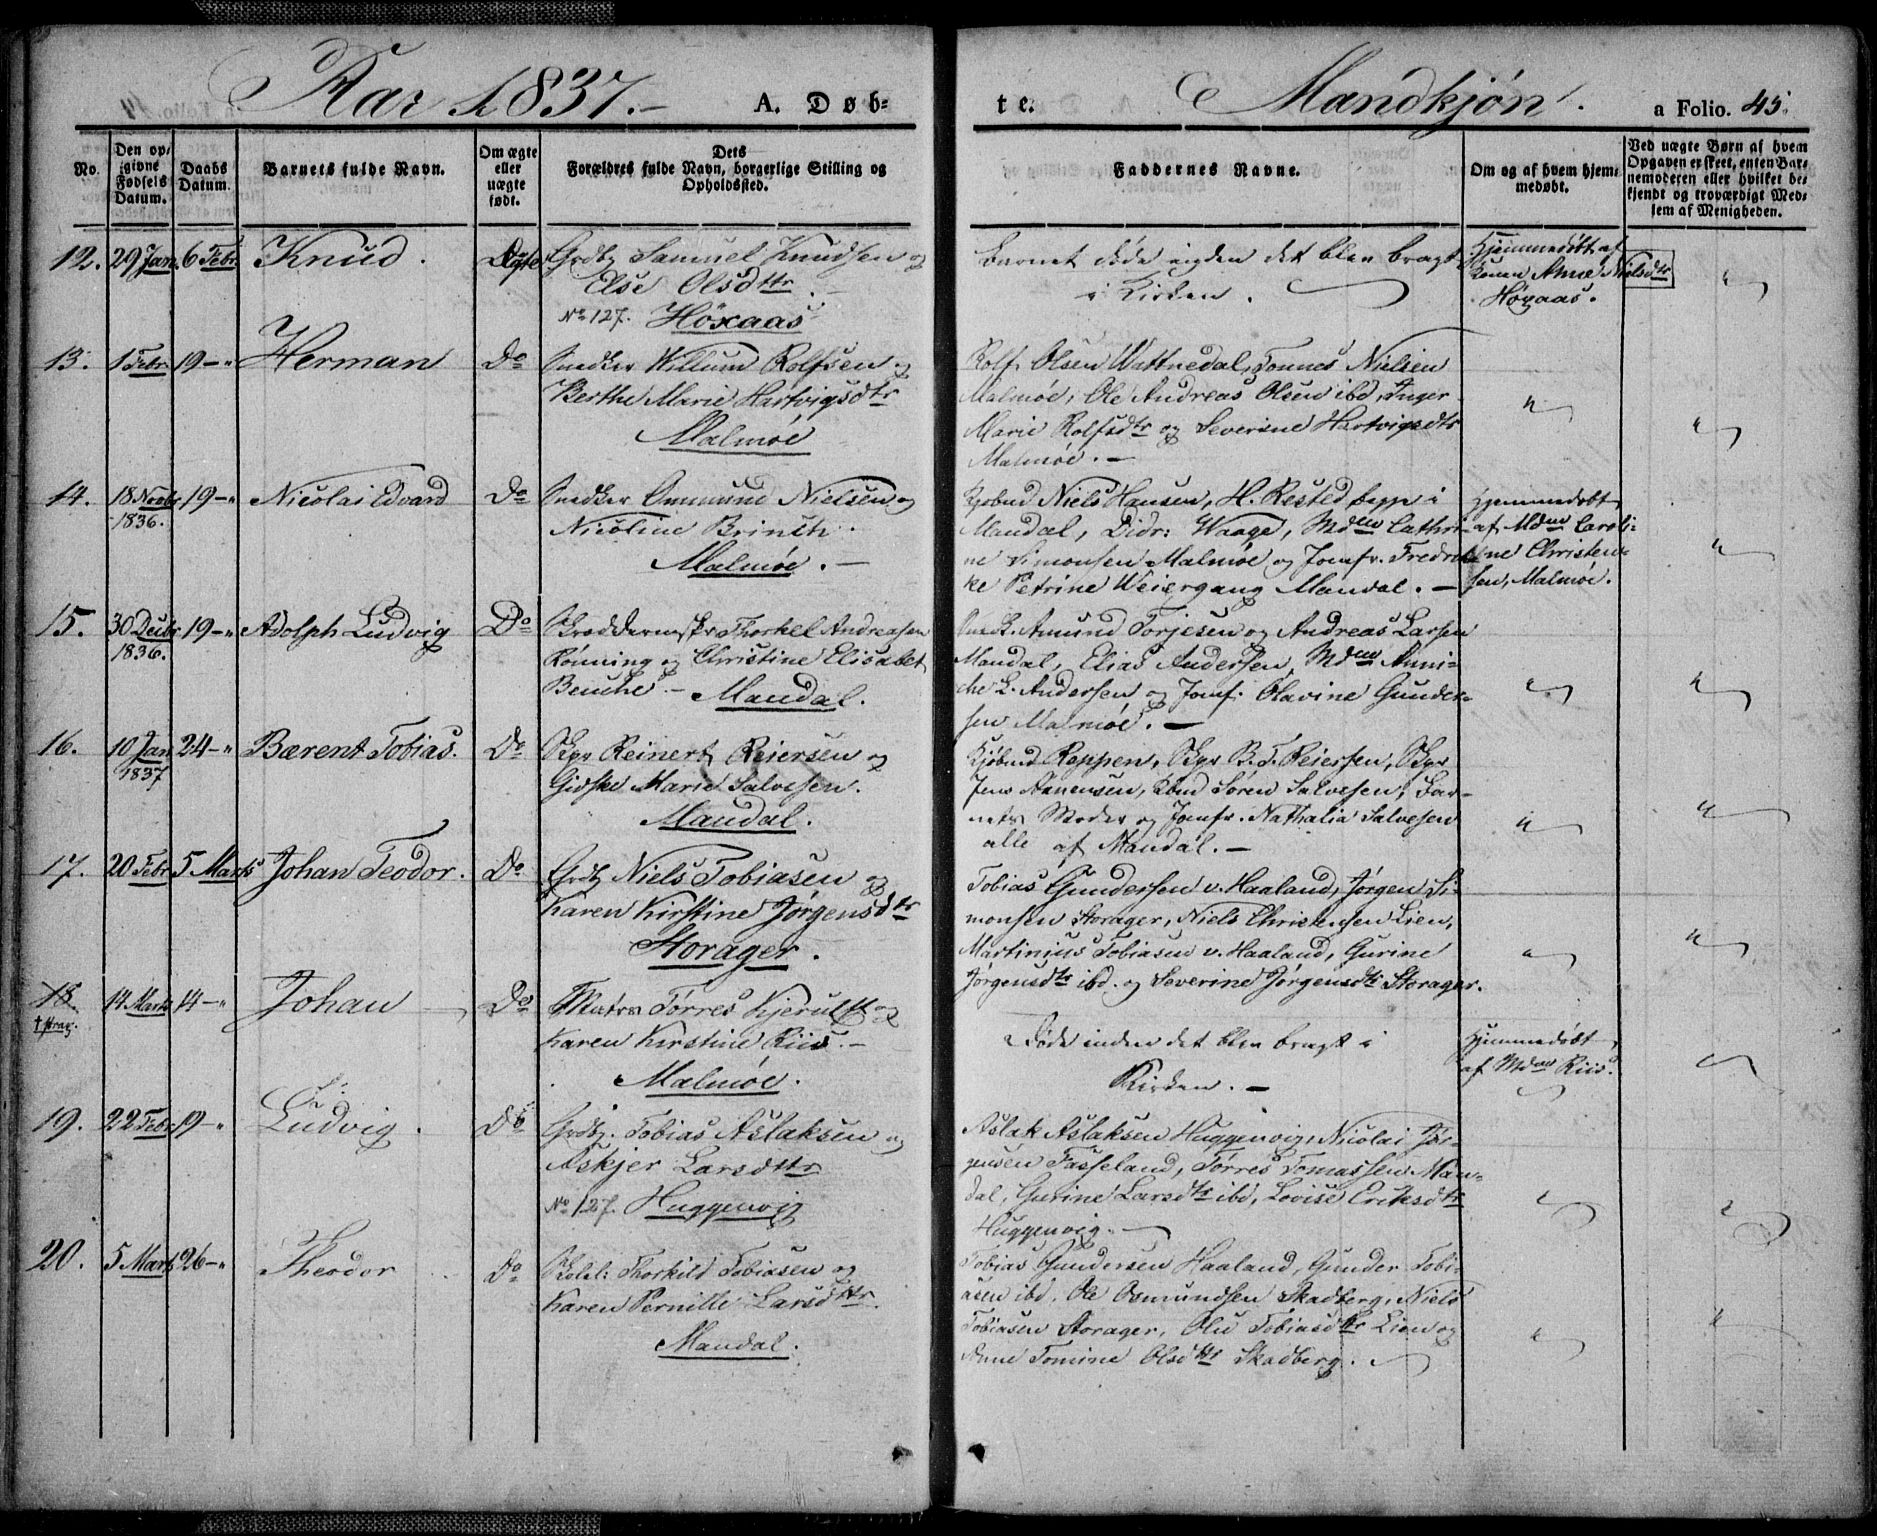 Aar 1837.- A. Døb-
te. Mandkjøn. a Folio. 45.
No.
Den op-
givne
Fødsels
Datum.
Daabs
Datum.
Barnets fulde Navn.
Om ægte
eller
uægte
født.
Dets
Forældres fulde Navn, borgerlige Stilling og
Opholdssted.
Faddernes Navne.
Om og af hvem hjem-
medøbt.
Ved uægte Børn af hvem
Opgaven er skeet, enten Bar-
nemoderen eller hvilket be-
kjendt og troværdigt Med-
lem af Menigheden.
12. 29 Jan. 6 Febr. Knud. Ægte Grdbg Samuel Knudsen og
Else Olsdttr.
No 127. Høxaas
Barnet døde inden det blev bragt
i Kirken.
Hjemmedøbt af
Konen Anne Nielsdtr
Høxaas.
"
13. 1 Febr. 19-" Herman Do Snedker Willum Rolfsen og
Berthe Marie Hartvigsdtr
Malmøe
Rolf Olsen Wattnedal, Tønnes Nielsen
Malmøe, Ole Andreas Olsen ibd, Inger
Marie Rolfsdtr og Severine Hartvigsdtr
Malmøe. -
"
"
14. 18 Novbr 19-" Nicolai Edvard Do Snedker Ommund Nielsen og
1836. Nicoline Brinch.
Malmøe. -
Kjøbmd Niels Hansen, H. Rested begge i
Mandal, Didr: Waage, Mdm Cathri-
ne Simonsen Malmøe og Jomfr. Fredrik-
ke Petrine Weiergang Mandal. -
Hjemmedøbt
af Mdm Caroli-
ne Christen-
sen, Malmøe.
"
15. 30 Decbr 19-" Adolph Ludvig Do Skreddermstr Thorkel Andreassen
1836. Rønning og Christine Elisabet
Benche - Mandal.
Snedk. Amund Torjesen og Andreas Larsen
Mandal, Elias Andersen, Mdm Anni-
che L. Andersen og Jomf. Olavine Gunder-
sen Malmøe. -
"
"
16. 10 Jan 24-" Bærent Tobias. Do Skpr Reinert Reiersen og
1837 Gidske Marie Salvesen.
Mandal.
Kjøbmd Reppen, Skpr B. T. Reiersen, Skpr
Jens Aanensen, Kbmd Søren Salvesen, Bar-
nets Moder og Jomfr. Nathalia Salvesen
alle af Mandal. -
"
"
17. 20 Febr 5 Marts Johan Teodor. Do Grdbg Niels Tobiasen og
Karen Kirstine Jørgensdtr
Storager.
Tobias Gundersen v. Haaland, Jørgen Si-
monsen Storager, Niels Christensen Lien,
Martinius Tobiasen v. Haaland, Gurine
Jørgensdtr ibd. og Severine Jørgensdtr Storager.
"
"
18 14 Marts 14-" Johan Do Matros Tørres Kjerulff og
Karen Kirstine Riis. -
Malmøe.
Døde inden det blev bragt i
Kirken. -
Hjemmedøbt
af Mdm Riis.
19. 22 Febr 19-" Ludvig. Do Grdbg. Tobias Aslaksen og
Askjer Larsdttr
No 127. Huggenvig
Aslak Aslaksen Huggenvig, Nicolai Jør-
gensen Fasseland, Tørres Tomassen Man-
dal, Gurine Larsdtr ibd, Lovise Eriksdtr
Huggenvig. -
"
"
20. 5 Marts 26-" Theodor Do Thorkild Tobiasen og
Karen Pernille Larsdttr.
Mandal.
Tobias Gundersen Haaland, Gunder Tobi-
asen ibd, Ole Osmundsen Skadberg, Niels
Tobiasen Storager, Olu Tobiasdtr Lien og
Anne Tomine Olsdtr Skadberg.
"
"